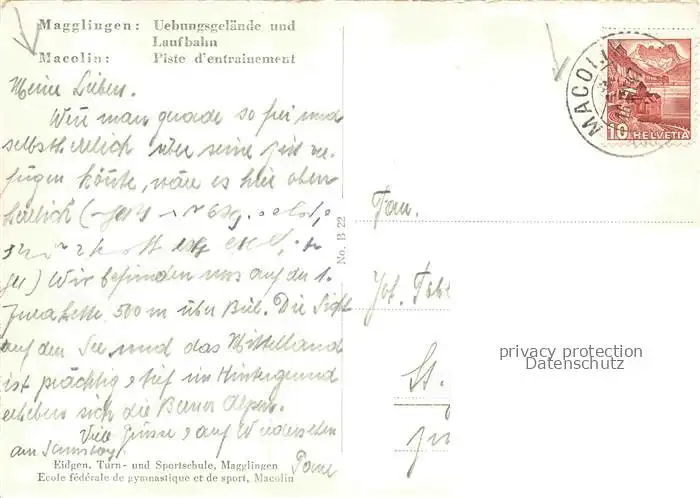 Magglingen: Uebungsgelände und
Laufbahn
Macolin: Piste d'entrainement
Meine Lieben.
Wenn man gerade so frei und
selbstherrlich über seine Zeit ver-
fügen könnte, wäre es hier oben
herrlich
Wir befinden uns auf der 1.
Jurakette 500 m über Biel. Die Sicht
auf den See und das Mittelland
ist prächtig, tief im Hintergrund
erheben sich die Berner Alpen.
Viele Grüsse, auf Wiedersehen
am Samstag.
Eidgen. Turn- und Sportschule, Magglingen
Ecole fédérale de gymnastique et de sport, Macolin
No. B 22
MACOLIN
10 HELVETIA
Fam.
Jos.
St.
privacy protection
Datenschutz